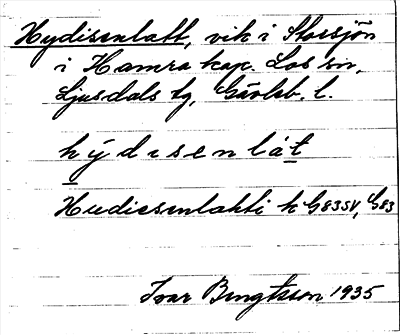 Hydisenlatt, vik i Storsjön
i Hamra kap. Los sn,
Ljusdals tg, Gävleb. l.
hýdɩsenlåt
Hudiesenlahti k G83SV, G83
Ivar Bengtsson 1935